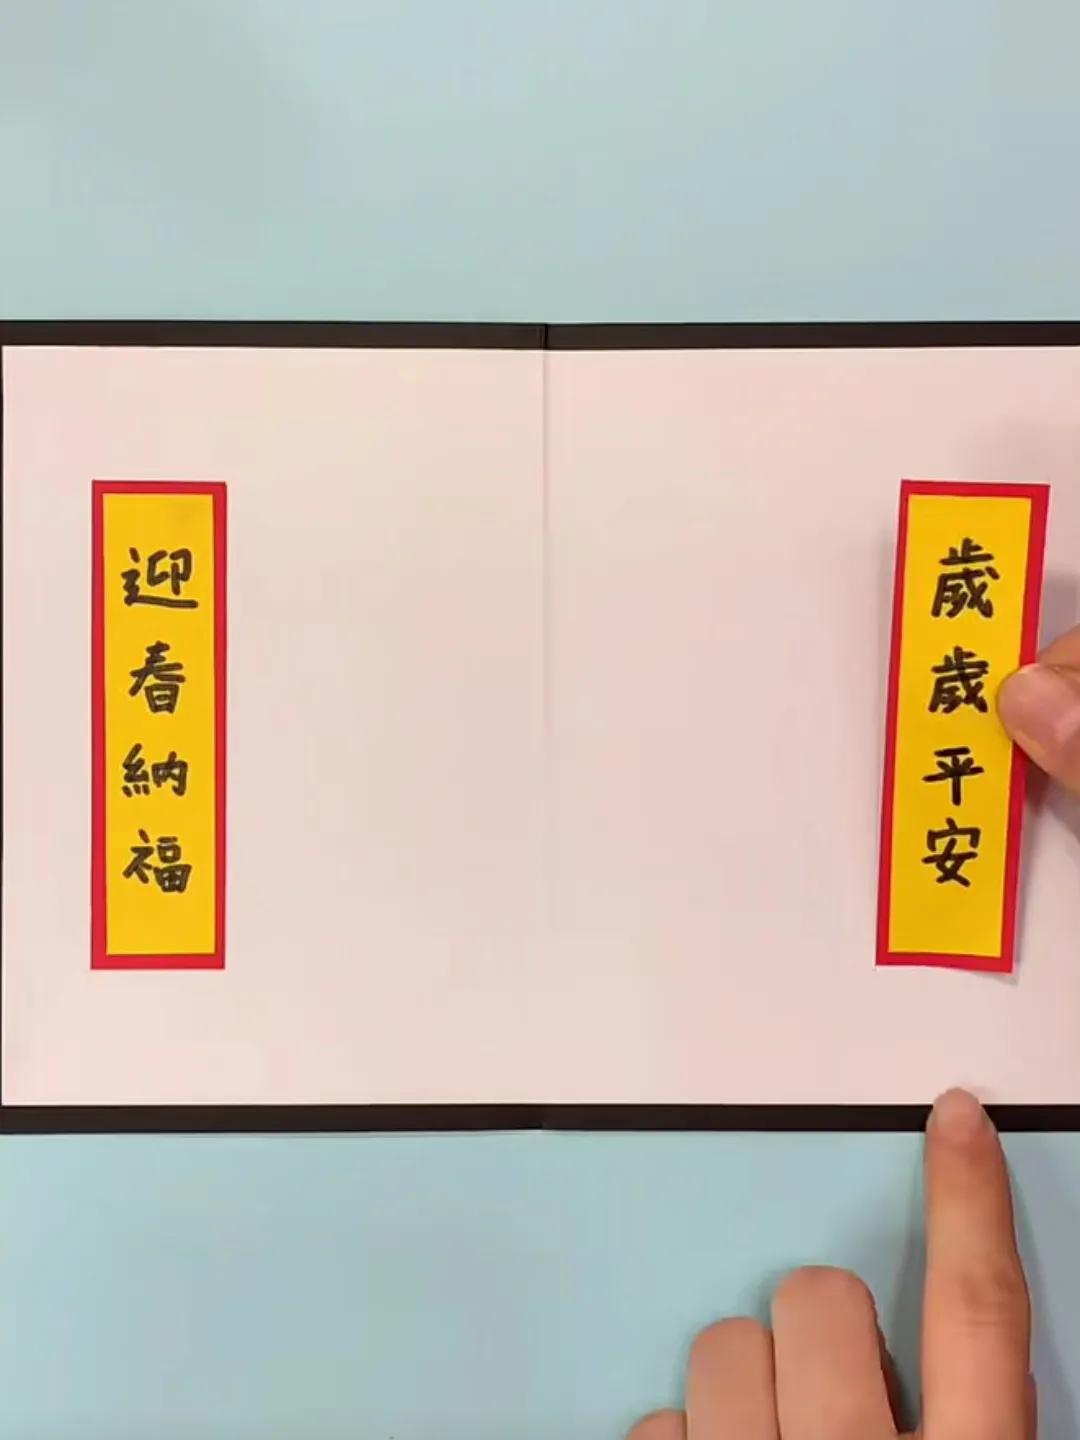 迎春納福
歲歲平安